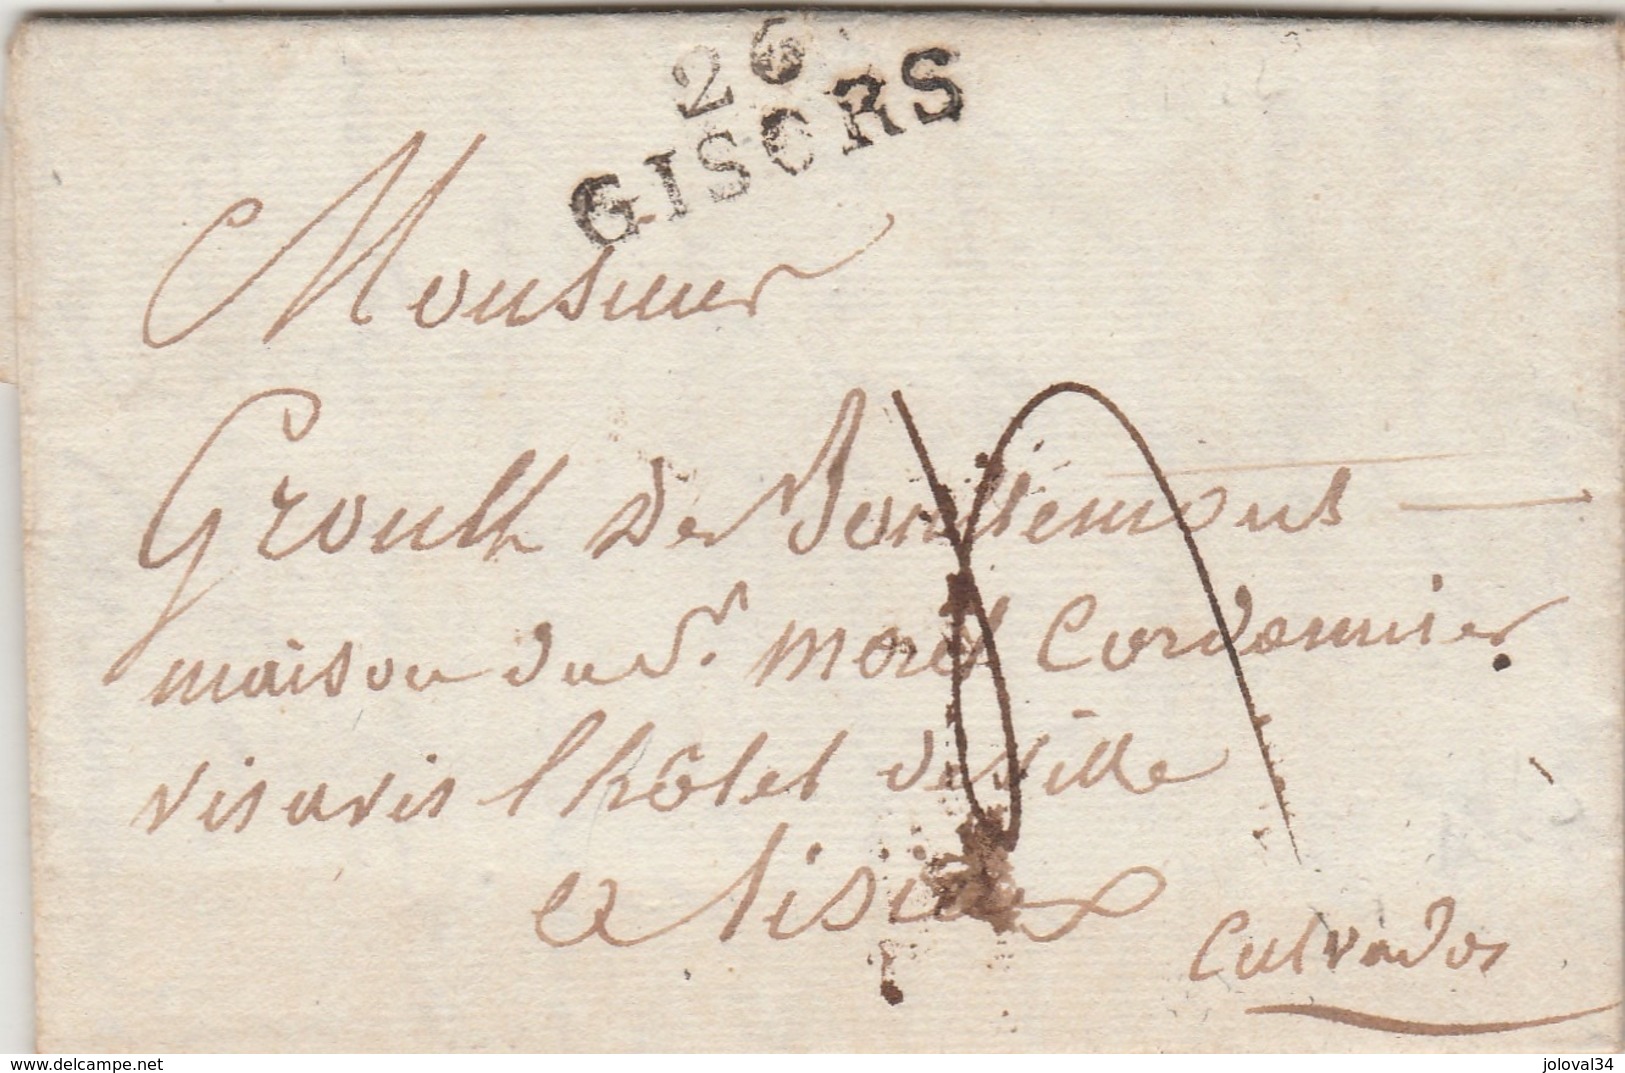 26
GISORS
Monsieur
Groult de Bontemont
maison du Sr. Morel Cordonnier
vis avis l'hôtel de ville
a Lisieux
Calvados
joloval34